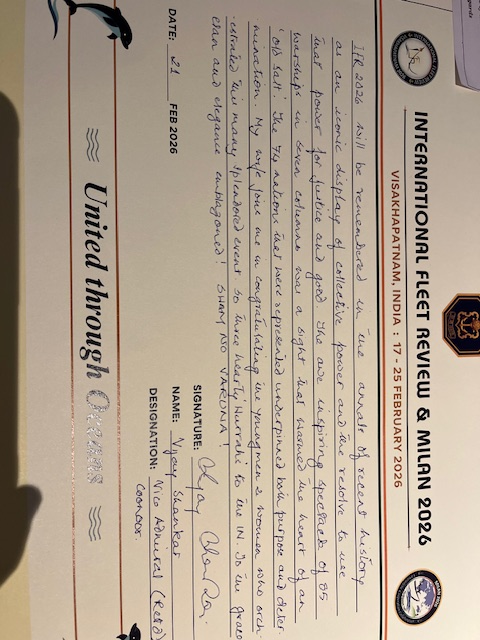 INTERNATIONAL FLEET REVIEW & MILAN 2026
VISAKHAPATNAM, INDIA : 17 - 25 FEBRUARY 2026
IFR 2026 will be remembered in the annals of recent history
as an iconic display of collective power and the resolve to use
that power for justice and good. The awe inspiring spectacle of 85
warships in seven columns was a sight that warmed the heart of an
'old salt'. The 74 nations that were represented underpinned both purpose and deter-
mination. My wife joins me in congratulating the young men & women who orch-
-estrated this many splendored event. So three hearty 'Hurrahs' to the IN. To the grace
elan and elegance emblazoned! SHAM NO VARUNA!
SIGNATURE:
DATE: 21 FEB 2026
NAME: Vijay Shankar
DESIGNATION: Vice Admiral (Retd)
Coonoor.
United through Oceans